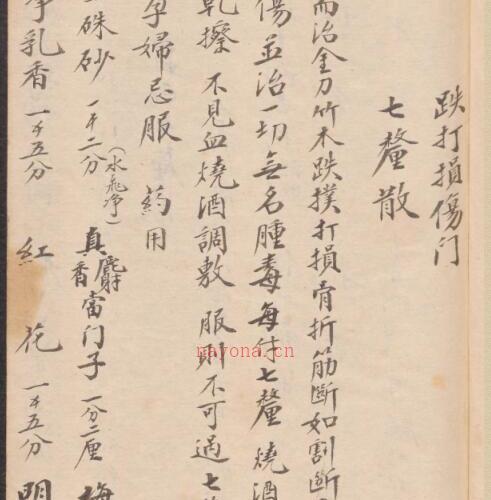 跌打损傷门
七釐散
而治金刀竹木跌撲打損骨折筋斷如割斷
傷並治一切無名腫毒每付七釐燒酒
乾擦 不見血燒酒調敷 服則不可過七
孕婦忌服 药用
硃砂 一千二分(水飛净) 真麝香當门子 一分二厘
乳香 一千五分 紅花 一千五分 明
nayona.cn